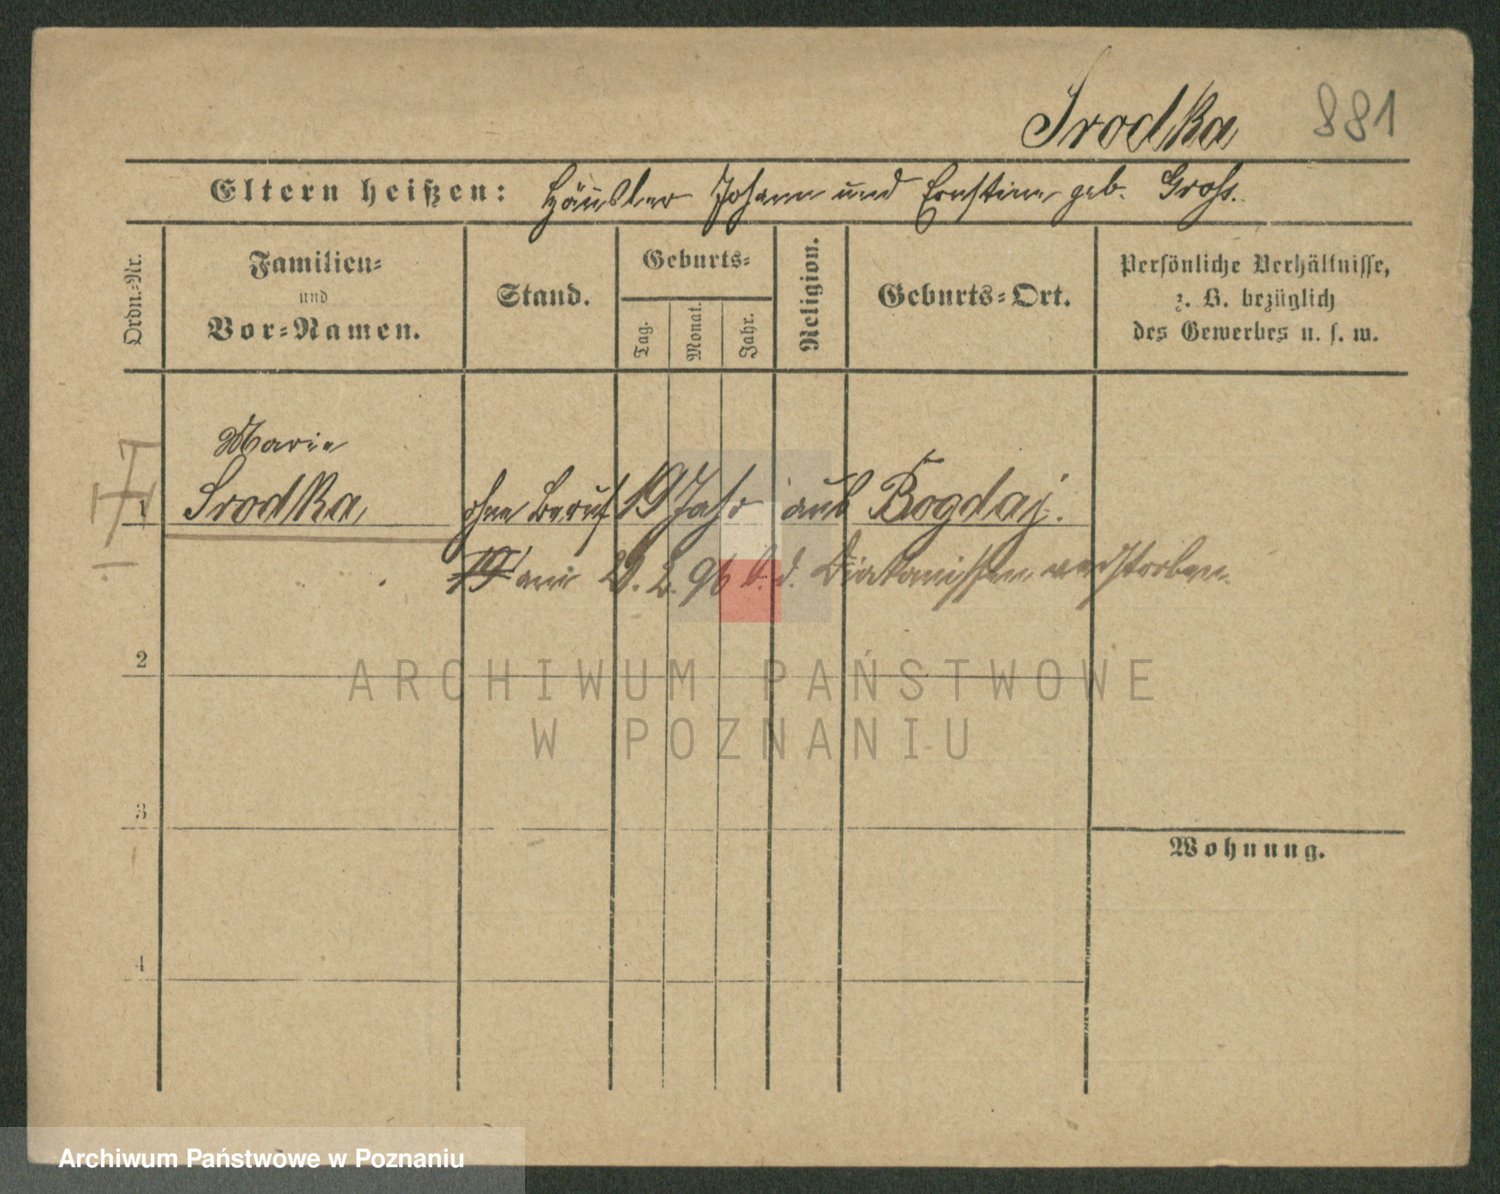 Srodka 881
Eltern heißen: Häusler Johann und Ernstine geb. Groß.
Ordn.-Nr.
Familien-
und
Vor-Namen.
Stand.
Geburts-
Tag.
Monat.
Jahr.
Religion.
Geburts-Ort.
Persönliche Verhältnisse,
z. B. bezüglich
des Gewerbes u. s. w.
Marie
1 Srodka, ohne Beruf 19 Jahr aus Bogdaj.
am 2. 96 b. d. Diakonissen verstorben.
2
ARCHIWUM PAŃSTWOWE
W POZNANIU
3
Wohnung.
4
Archiwum Państwowe w Poznaniu